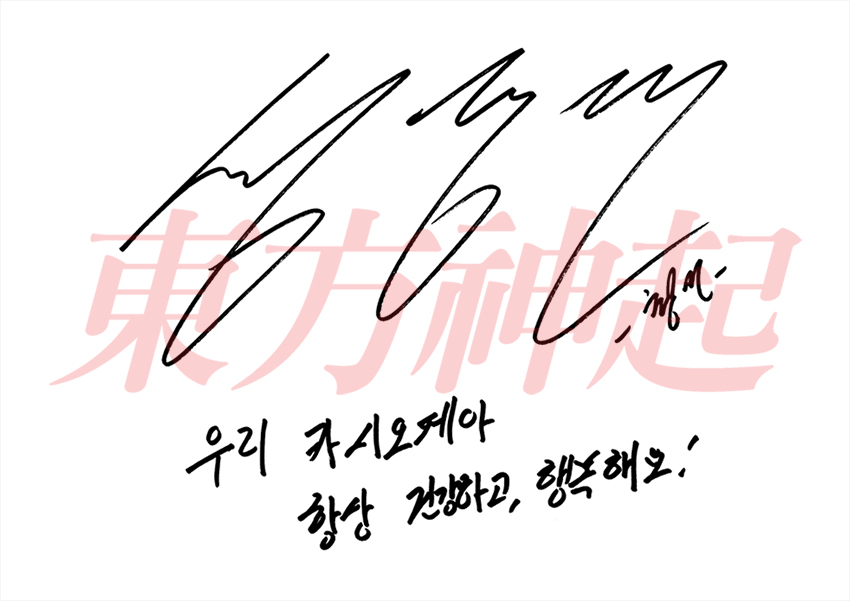 東方神起
-창민-
우리 카시오페아
항상 건강하고, 행복해요!